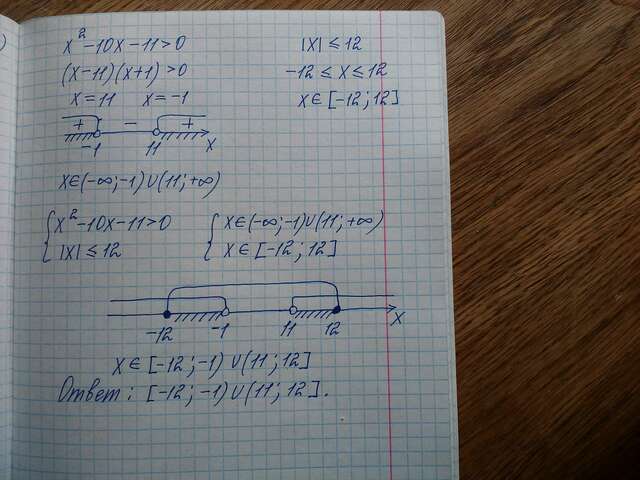 x² -10x -11 > 0
(x-11)(x+1) > 0
x = 11 x = -1
+ - +
-1 11 x
x∈(-∞; -1)∪(11; +∞)
|x| ≤ 12
-12 ≤ x ≤ 12
x∈[-12; 12]
{ x² -10x -11 > 0
|x| ≤ 12
{ x∈(-∞; -1)∪(11; +∞)
x∈[-12; 12]
-12 -1 11 12 x
x∈[-12; -1)∪(11; 12]
Ответ: [-12; -1)∪(11; 12].